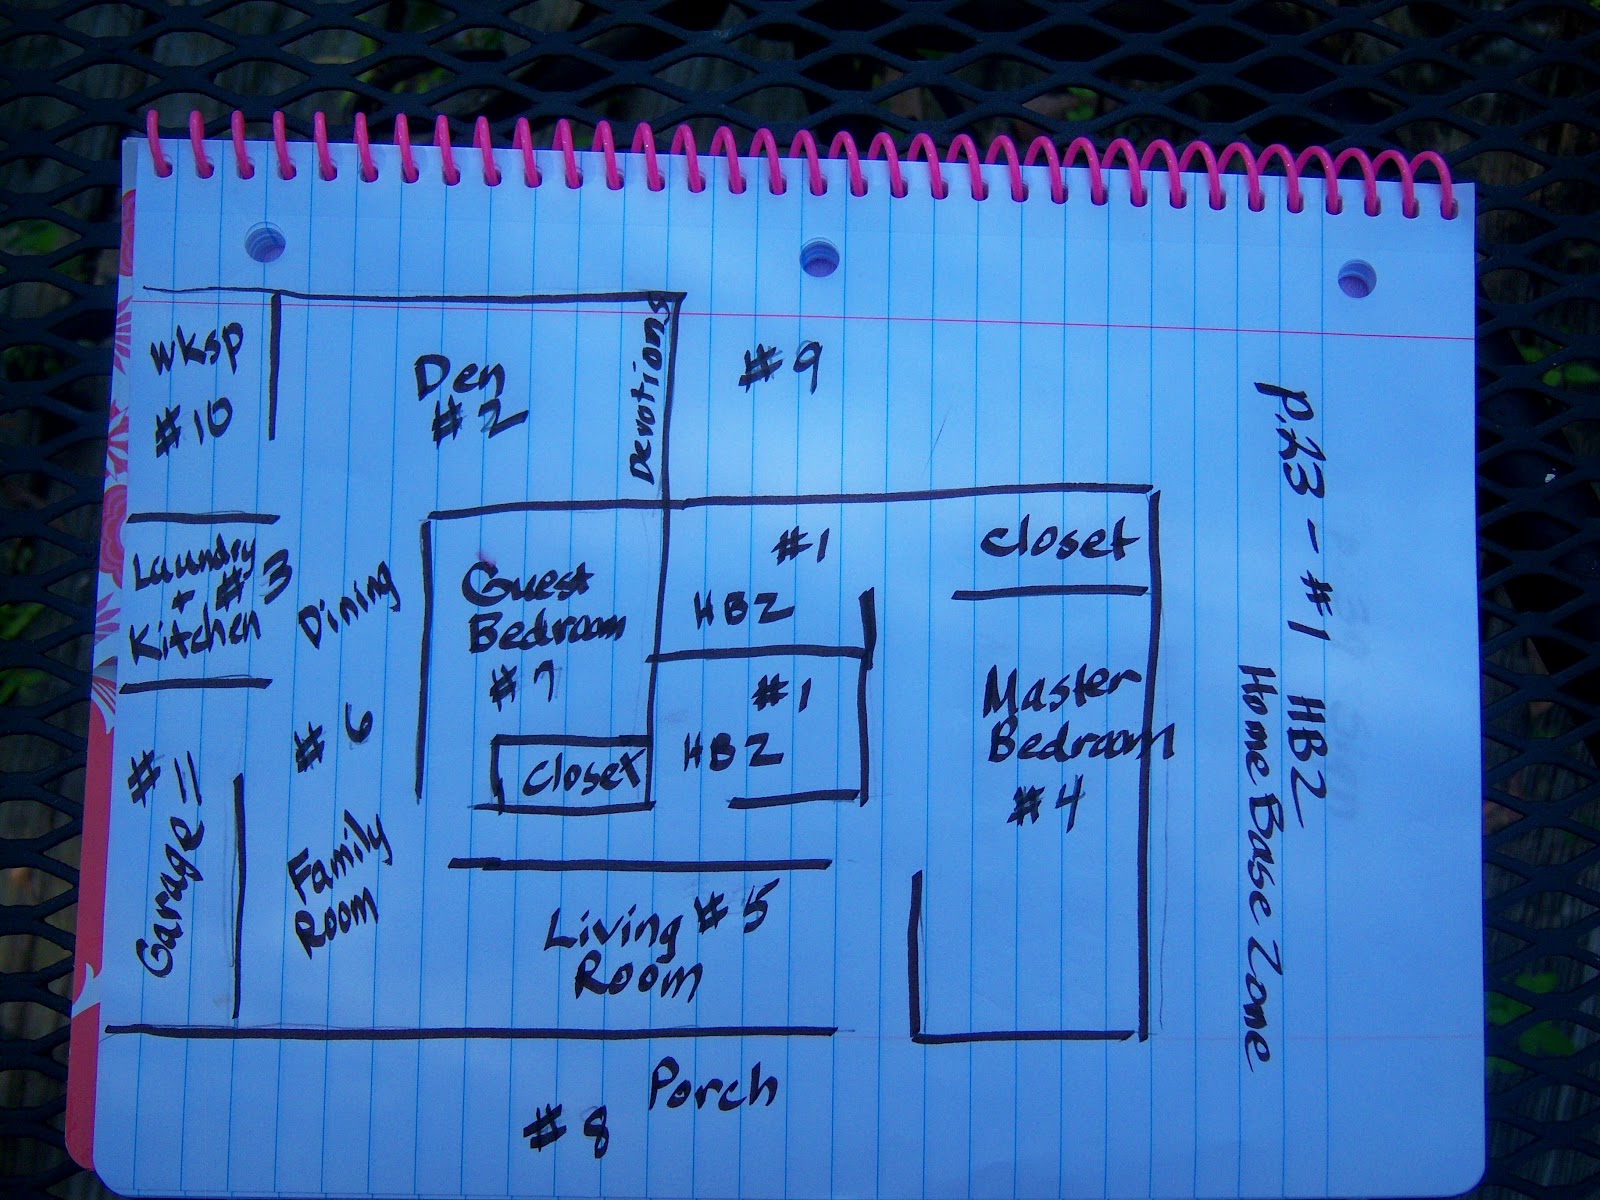 wksp
#10
Den
#2
Devotions
#9
Laundry
+ #3
Kitchen
Dining
#6
Family
Room
Garage # 11
Guest
Bedroom
#7
closet
#1
HBZ
#1
HBZ
closet
Master
Bedroom
#4
Living #5
Room
Porch
#8
P.23 - #1 HBZ
Home Base Zone